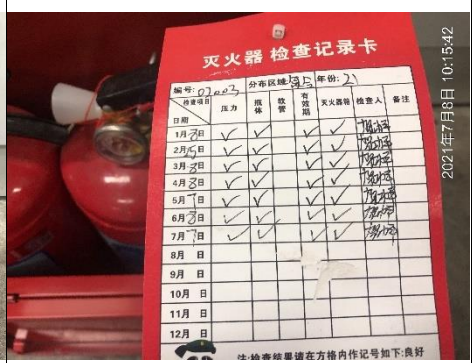 灭火器 检查记录卡
编号: 02003 分布区域 年份: 21
检查项目 日期 压力 瓶体 软管 有效期 灭火器箱 检查人 备注
1月8日 ✓ ✓ ✓ ✓
2月5日 ✓ ✓ ✓ ✓
3月8日 ✓ ✓ ✓ ✓
4月8日 ✓ ✓ ✓ ✓
5月7日 ✓ ✓ ✓ ✓
6月8日 ✓ ✓ ✓ ✓
7月7日 ✓ ✓ ✓ ✓
8月 日
9月 日
10月 日
11月 日
12月 日
注:检查结果请在方格内作记号如下:良好
2021年7月8日 10:15:42